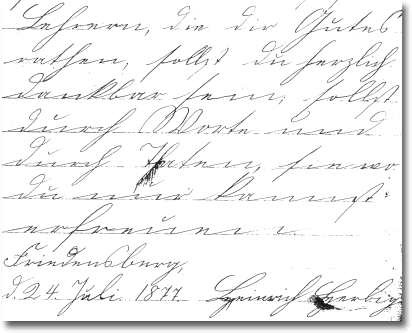 Lehrern, die dir Gutes
rathen, sollst du herzlich
dankbar sein, sollst
durch Worte und
durch Thaten, sie wo
du nur kannst
erfreuen
Friedensberg,
d. 24. Juli 1877. Heinrich Herbig